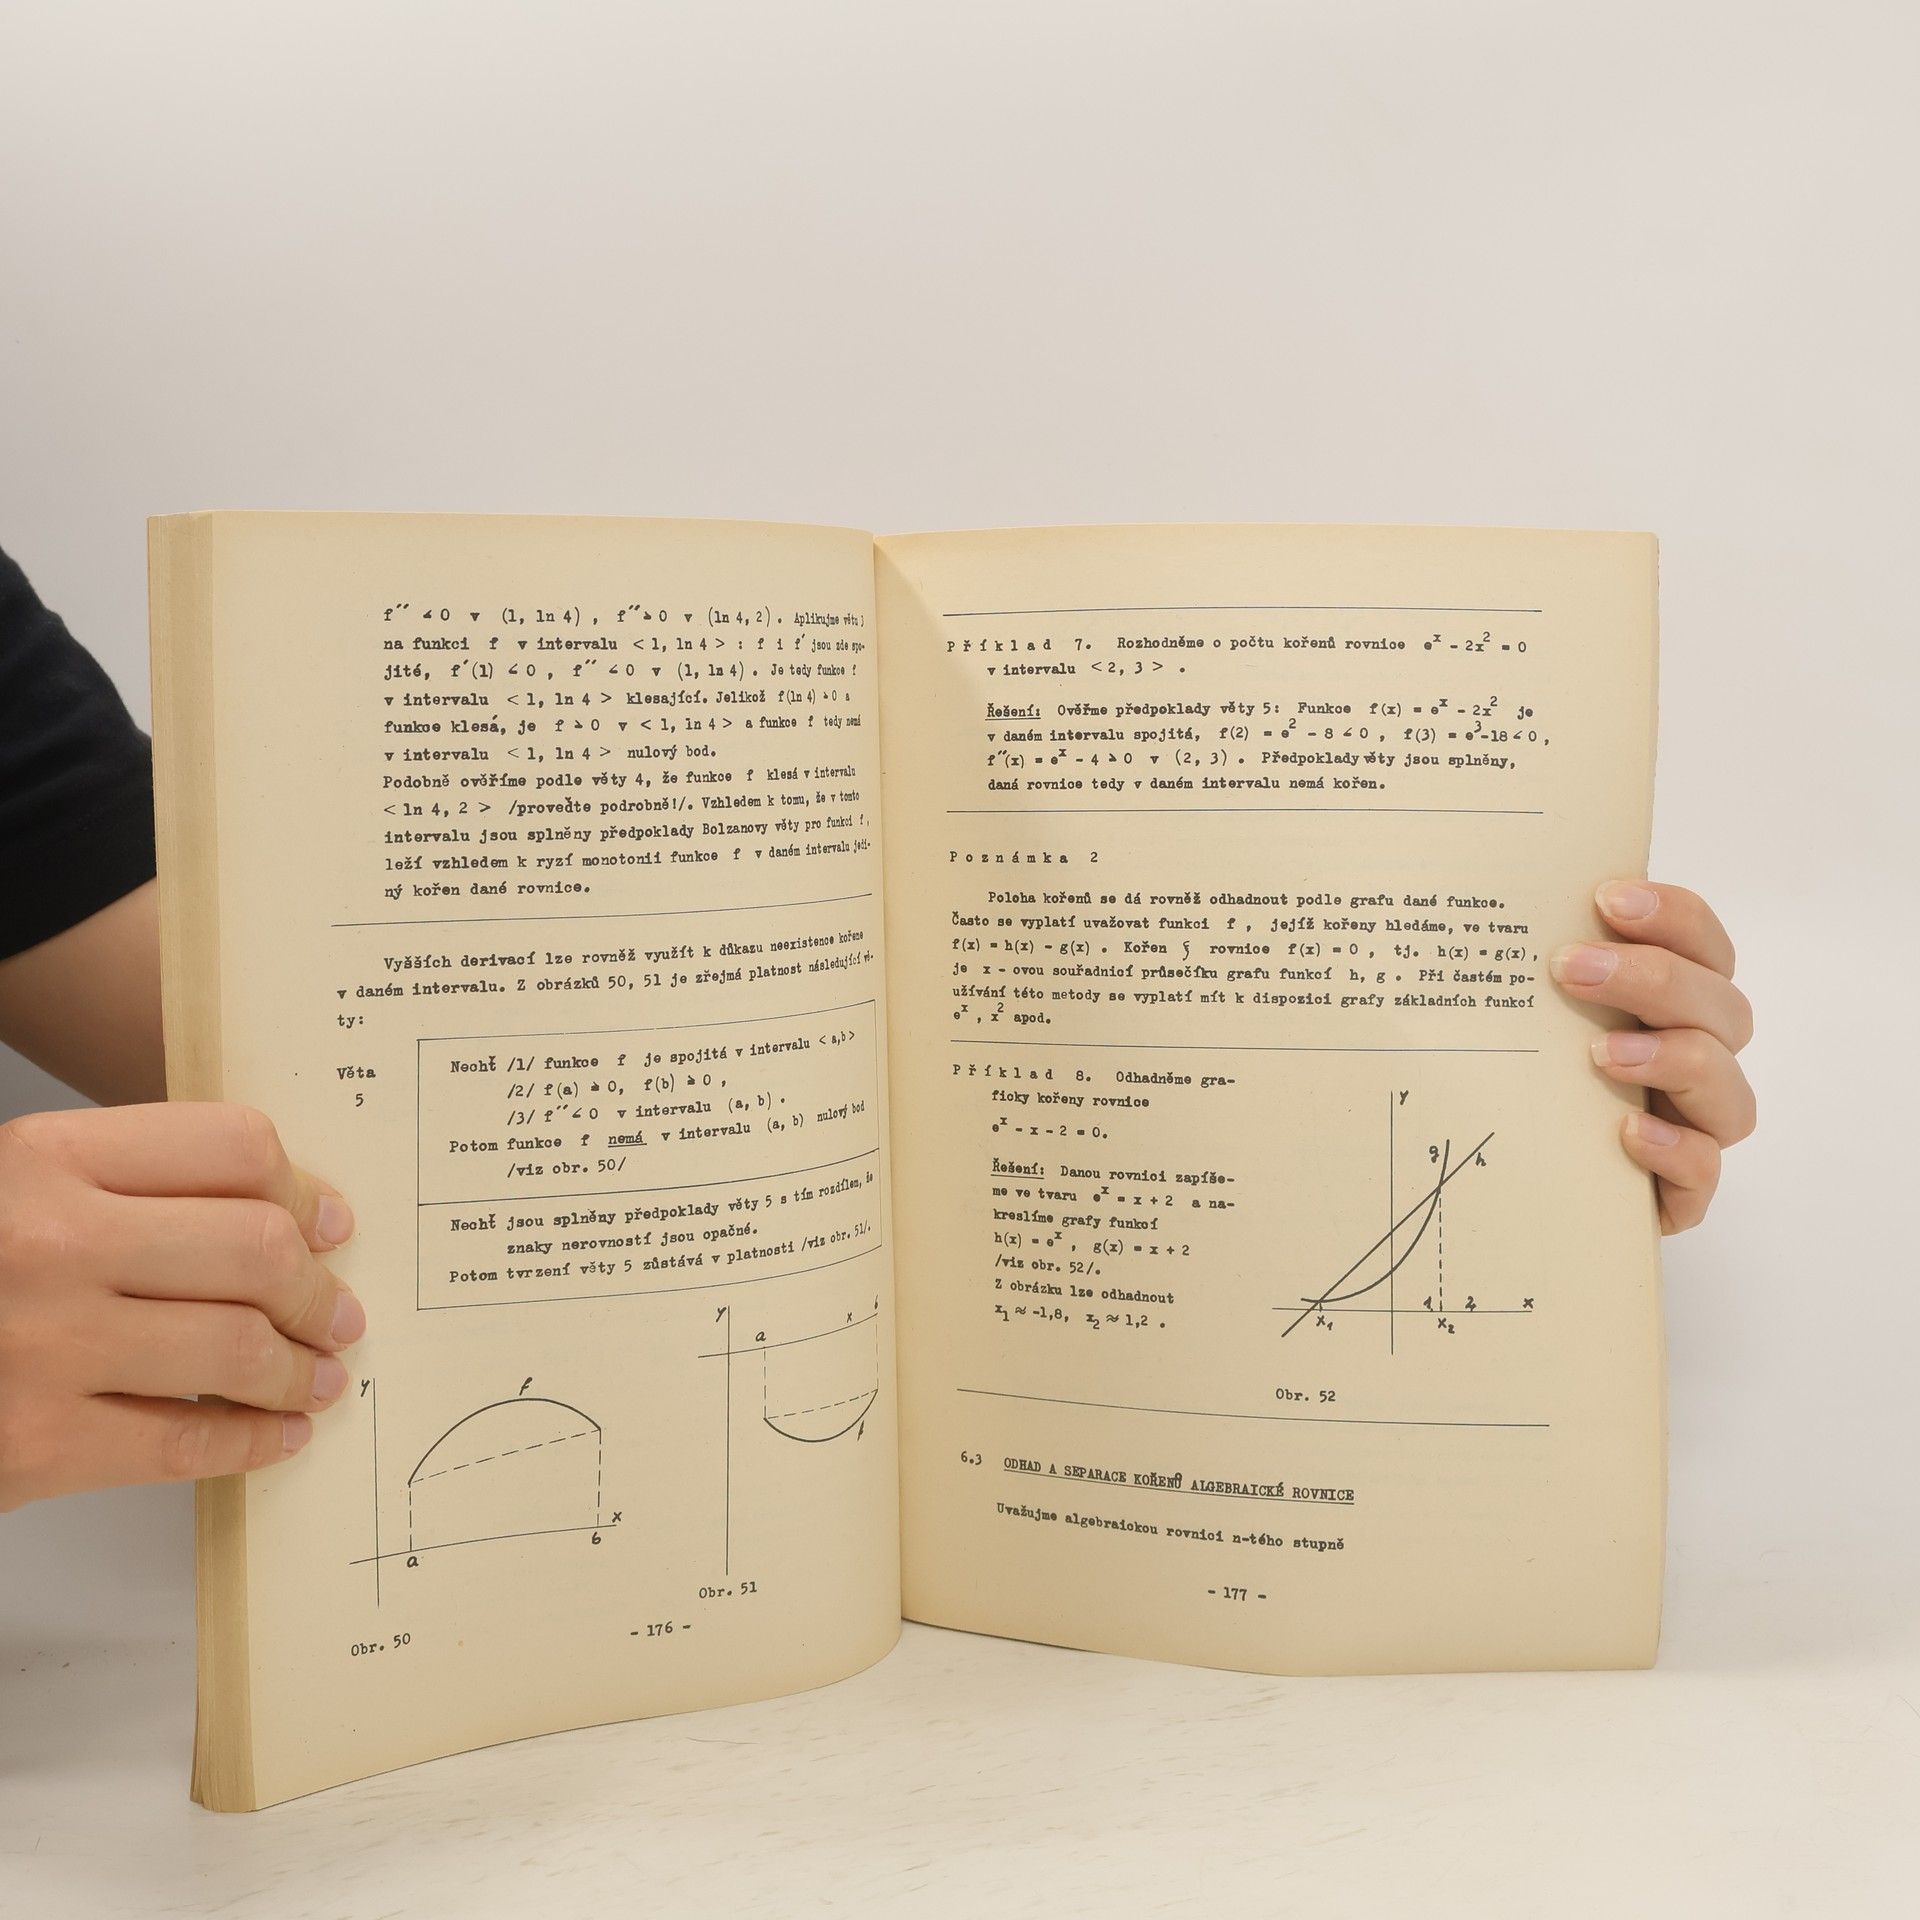 f´´ < 0 v (1, ln 4) , f´´ > 0 v (ln 4, 2) . Aplikujme větu 3
na funkci f v intervalu < 1, ln 4 > : f i f´ jsou zde spo-
jité, f´(1) < 0 , f´´ < 0 v (1, ln 4) . Je tedy funkce f
v intervalu < 1, ln 4 > klesající. Jelikož f(ln 4) > 0 a
funkce klesá, je f > 0 v < 1, ln 4 > a funkce f tedy nemá
v intervalu < 1, ln 4 > nulový bod.
Podobně ověříme podle věty 4, že funkce f klesá v intervalu
< ln 4, 2 > /proveďte podrobně!/. Vzhledem k tomu, že v tomto
intervalu jsou splněny předpoklady Bolzanovy věty pro funkci f,
leží vzhledem k ryzí monotonii funkce f v daném intervalu jedi-
ný kořen dané rovnice.
Vyšších derivací lze rovněž využít k důkazu neexistence kořene
v daném intervalu. Z obrázků 50, 51 je zřejmá platnost následující vě-
ty:
Věta
5
Nechť /1/ funkce f je spojitá v intervalu < a,b >
/2/ f(a) ≧ 0, f(b) ≧ 0 ,
/3/ f´´ < 0 v intervalu (a, b) .
Potom funkce f nemá v intervalu (a, b) nulový bod
/viz obr. 50/
Nechť jsou splněny předpoklady věty 5 s tím rozdílem, že
znaky nerovností jsou opačné.
Potom tvrzení věty 5 zůstává v platnosti /viz obr. 51/.
y
f
a
b
x
Obr. 50
y
a
x
b
f
Obr. 51
- 176 -
Příklad 7. Rozhodněme o počtu kořenů rovnice e^x - 2x^2 = 0
v intervalu < 2, 3 > .
Řešení: Ověřme předpoklady věty 5: Funkce f(x) = e^x - 2x^2 je
v daném intervalu spojitá, f(2) = e^2 - 8 < 0 , f(3) = e^3-18 < 0 ,
f´´(x) = e^x - 4 > 0 v (2, 3) . Předpoklady věty jsou splněny,
daná rovnice tedy v daném intervalu nemá kořen.
Poznámka 2
Poloha kořenů se dá rovněž odhadnout podle grafu dané funkce.
Často se vyplatí uvažovat funkci f , jejíž kořeny hledáme, ve tvaru
f(x) = h(x) - g(x) . Kořen ξ rovnice f(x) = 0 , tj. h(x) = g(x) ,
je x - ovou souřadnicí průsečíku grafu funkcí h, g . Při častém po-
užívání této metody se vyplatí mít k dispozici grafy základních funkcí
e^x , x^2 apod.
Příklad 8. Odhadněme gra-
ficky kořeny rovnice
e^x - x - 2 = 0.
Řešení: Danou rovnici zapíše-
me ve tvaru e^x = x + 2 a na-
kreslíme grafy funkcí
h(x) = e^x , g(x) = x + 2
/viz obr. 52/.
Z obrázku lze odhadnout
x1 ≈ -1,8, x2 ≈ 1,2 .
y
g
h
1
2
x
x1
x2
Obr. 52
6.3 ODHAD A SEPARACE KOŘENŮ ALGEBRAICKÉ ROVNICE
Uvažujme algebraickou rovnici n-tého stupně
- 177 -